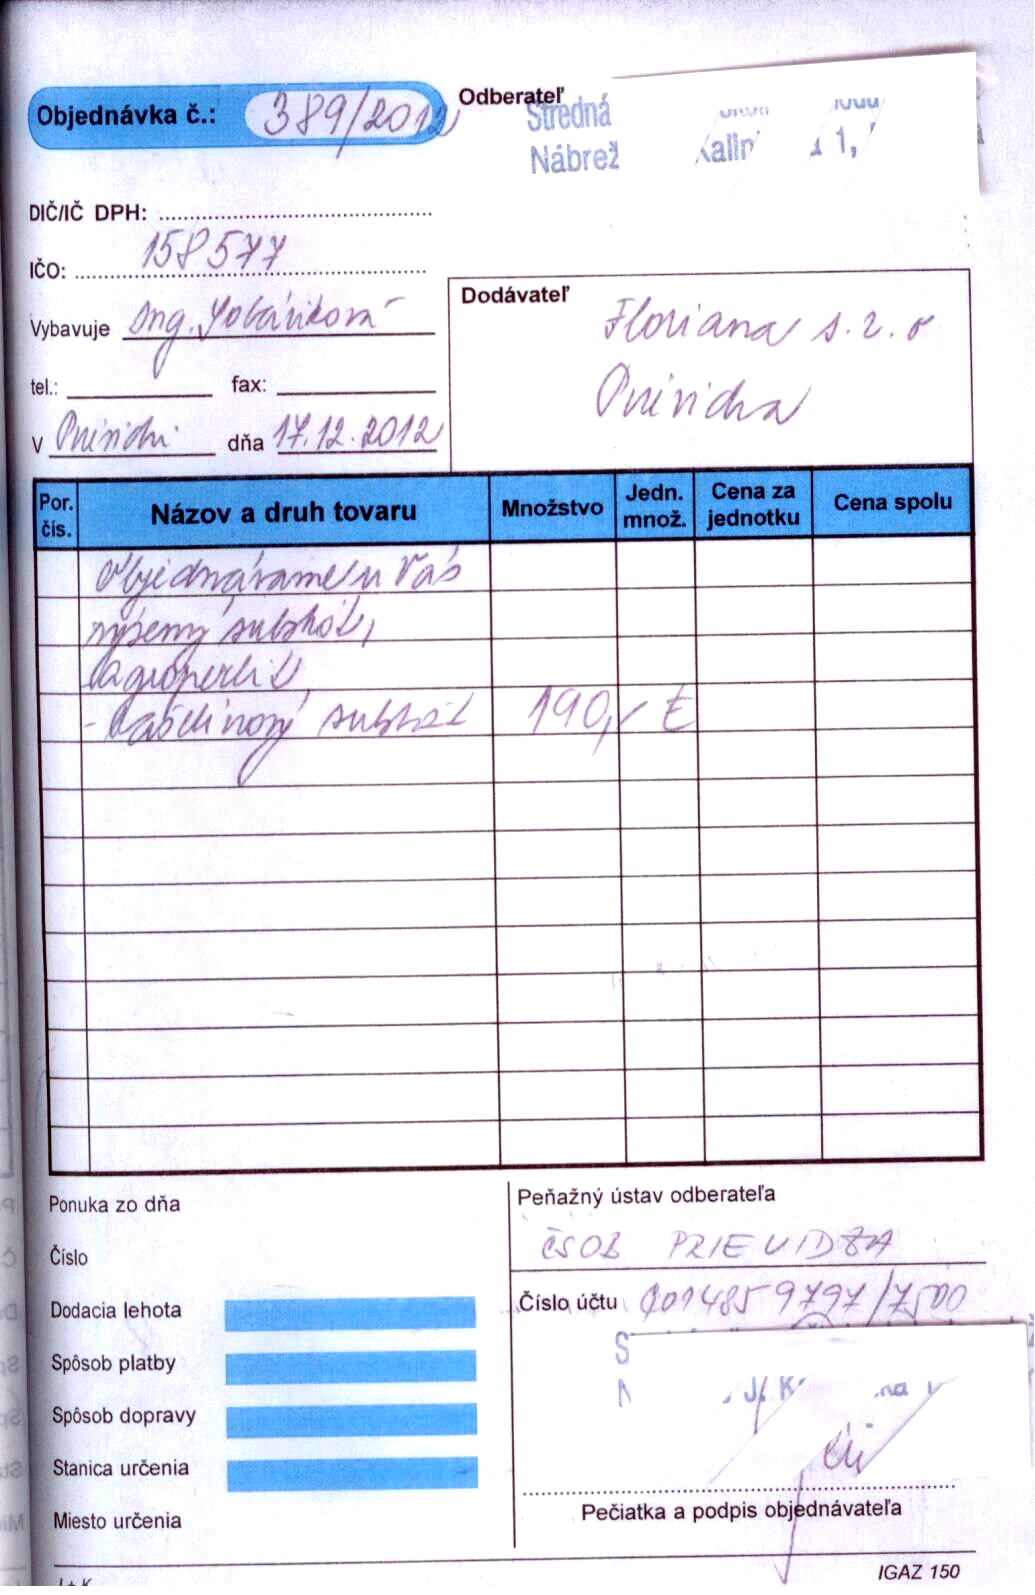 Objednávka č.: 389/2012
Odberateľ
Stredná
Nábrež Kalin 1,
DIČ/IČ DPH:
IČO: 158577
Vybavuje Ing.
tel.: fax:
V Prievidzi dňa 17.12.2012
Dodávateľ
Floriana s.r.o
Prievidza
Por. čís. Názov a druh tovaru Množstvo Jedn. množ. Cena za jednotku Cena spolu
Objednávame u Vás
substrát,
agroperlit,
- rašelinový substrát 190,- €
Ponuka zo dňa
Číslo
Dodacia lehota
Spôsob platby
Spôsob dopravy
Stanica určenia
Miesto určenia
Peňažný ústav odberateľa
ČSOB PRIEVIDZA
Číslo účtu
S
N J. K
Pečiatka a podpis objednávateľa
IGAZ 150